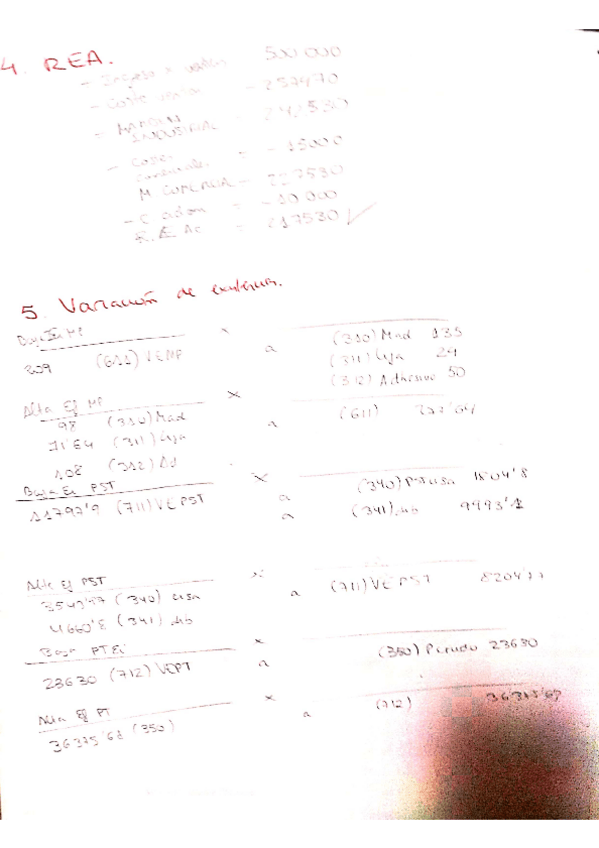 4. REA.
- Ingreso x ventas 500 000
- Coste ventas - 257470
- MARGEN INDUSTRIAL = 242530
- Costes comerciales = - 15000
M COMERCIAL - 227530
- C adm = - 10 000
R.E. Ac = 217530 ✓
5. Variación de existencias.
Baja Ei MP x
209 (611) VEMP a (310) Mad 135
(311) Lija 24
(312) Adhesivo 50
Alta Ef MP x
98 (310) Mad a (611)
(311) Lija
108 (312) Ad
Baja Ei PST x
11797'9 (711) VEPST a (340) PST Lisa 1804'8
a (341) 9993'1
Alta Ef PST x
(340) Lisa a (711) VE PST
4660'8 (341)
Baja PT Ei x
23630 (712) VEPT a (350) 23630
Alta Ef PT x
36375'67 (350) a (712) 36375'67